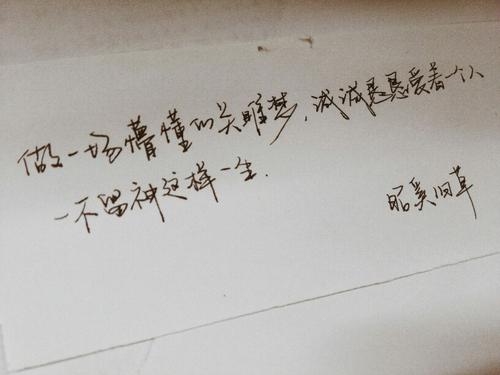 做一场懵懂的关雎梦，诚诚恳恳爱着一个人
一不留神这样一生.
昭奚旧草